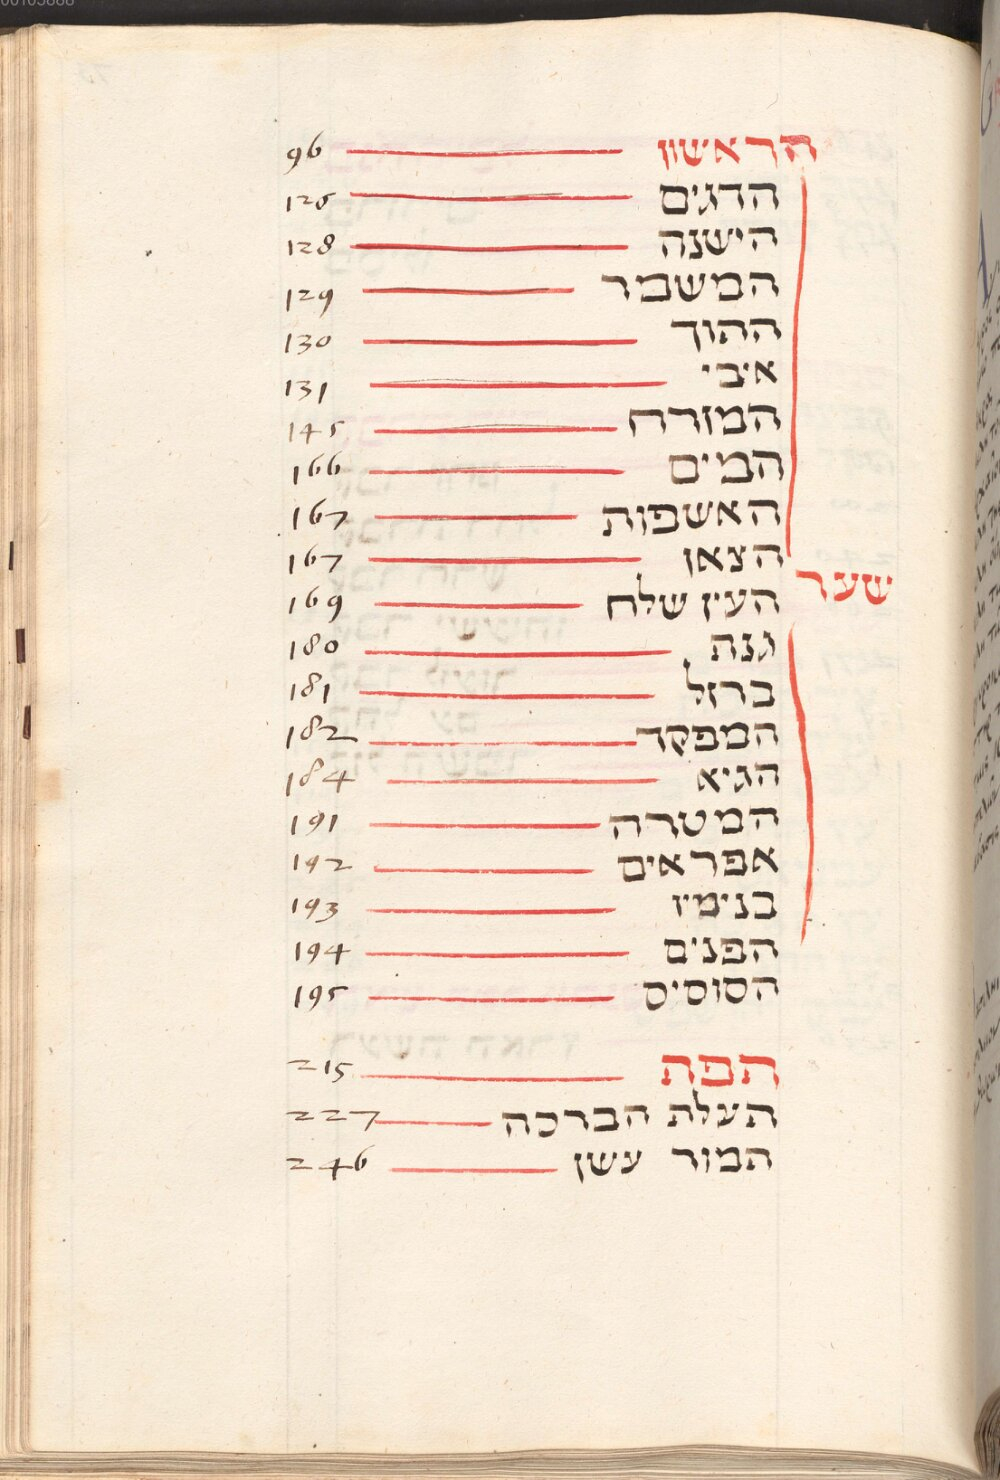 הראשון 96
הדגים 126
הישנה 128
המשמר 129
ההוך 130
איבי 131
המזרח 145
המים 166
האשפות 167
הצאן 167
שער
העין שלח 169
גנת 180
ברזל 181
המפקד 182
הגיא 184
המטרה 191
אפראים 192
בנימין 193
הפנים 194
הסוסים 195
תפת 215
תעלת הברכה 227
המור עשן 246